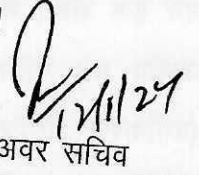 12/11/24
अवर सचिव